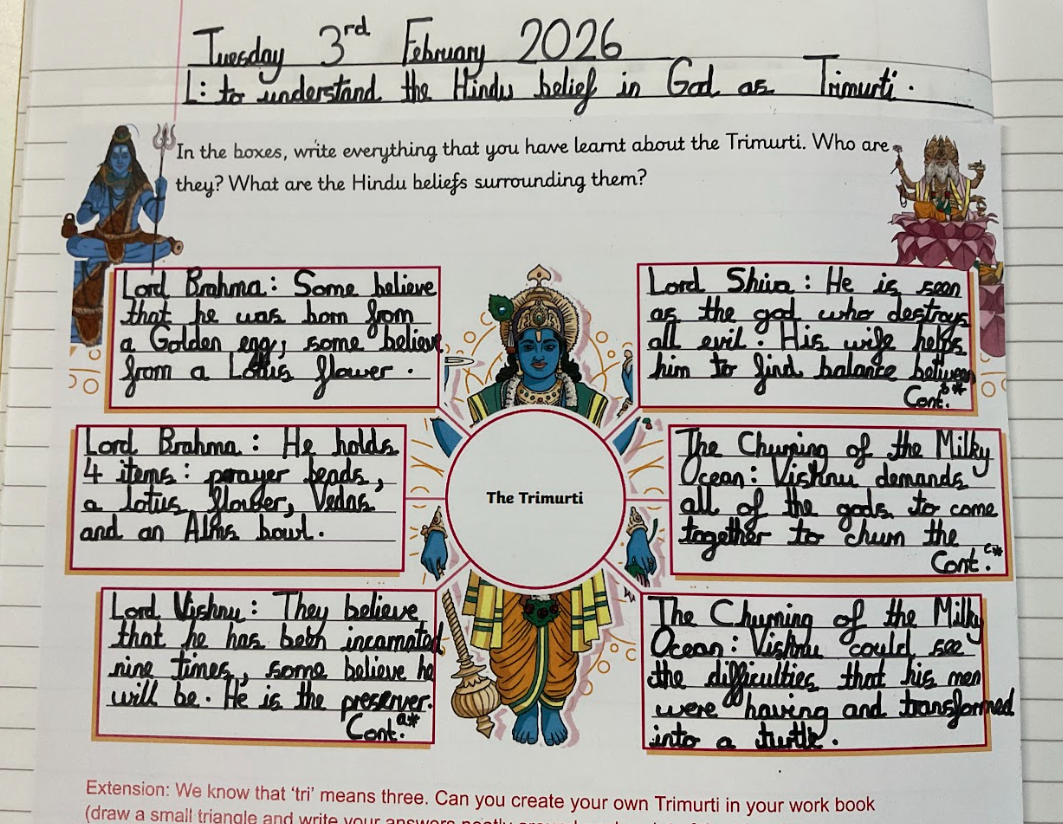 Tuesday 3rd February 2026
L: to understand the Hindu belief in God as Trimurti.
In the boxes, write everything that you have learnt about the Trimurti. Who are
they? What are the Hindu beliefs surrounding them?
Lord Brahma: Some believe
that he was born from
a Golden egg, some believe
from a Lotus flower.
Lord Shiva: He is seen
as the god who destroys
all evil. His wife helps
him to find balance between
Cont.b*
Lord Brahma: He holds
4 items: prayer beads,
a lotus flower, Vedas
and an Alms bowl.
The Churning of the Milky
Ocean: Vishnu demands
all of the gods to come
together to churn the
Cont.c*
The Trimurti
Lord Vishnu: They believe
that he has been incarnated
nine times, some believe he
will be. He is the preserver.
Cont.a*
The Churning of the Milky
Ocean: Vishnu could see
the difficulties that his men
were having and transformed
into a turtle.
Extension: We know that 'tri' means three. Can you create your own Trimurti in your work book
(draw a small triangle and write your answers neatly